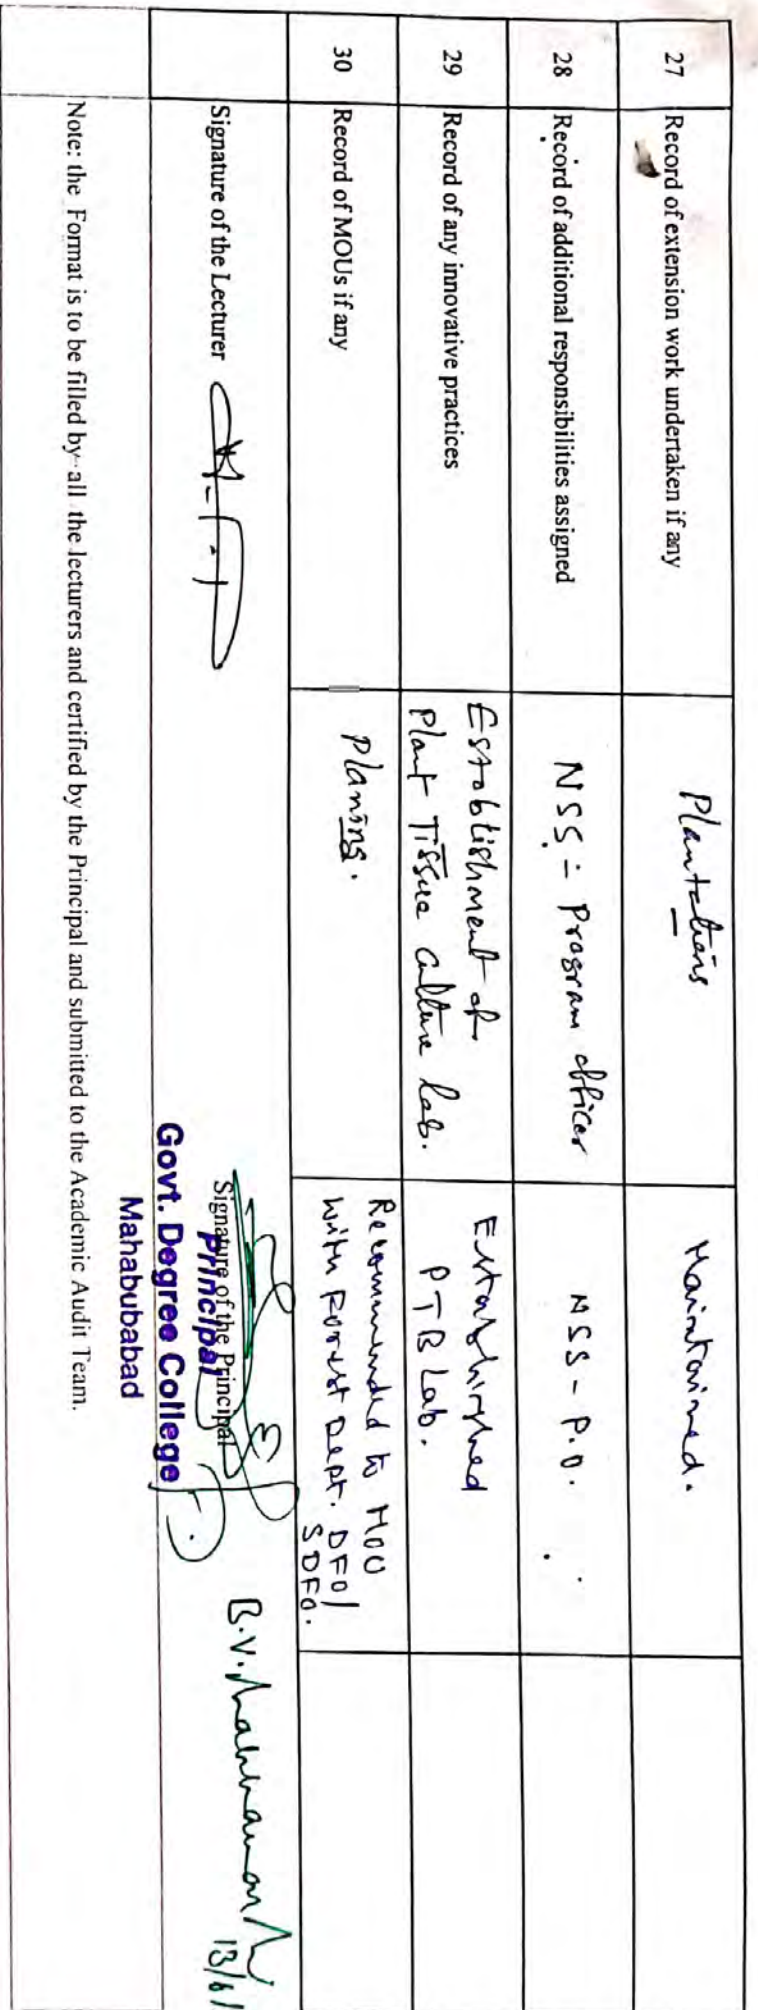 27 Record of extension work undertaken if any Plantations Maintained.
28 Record of additional responsibilities assigned NSS - Program officer NSS - P.O.
29 Record of any innovative practices Establishment of Plant Tissue culture Lab. Established PTB Lab.
30 Record of MOUs if any Planing. Recommended to MOU with Forest Dept. DFO/ SDFO.
Signature of the Lecturer
Signature of the Principal
Principal
Govt. Degree College
Mahabubabad
B.V.
13/6/
Note: the Format is to be filled by all the lecturers and certified by the Principal and submitted to the Academic Audit Team.